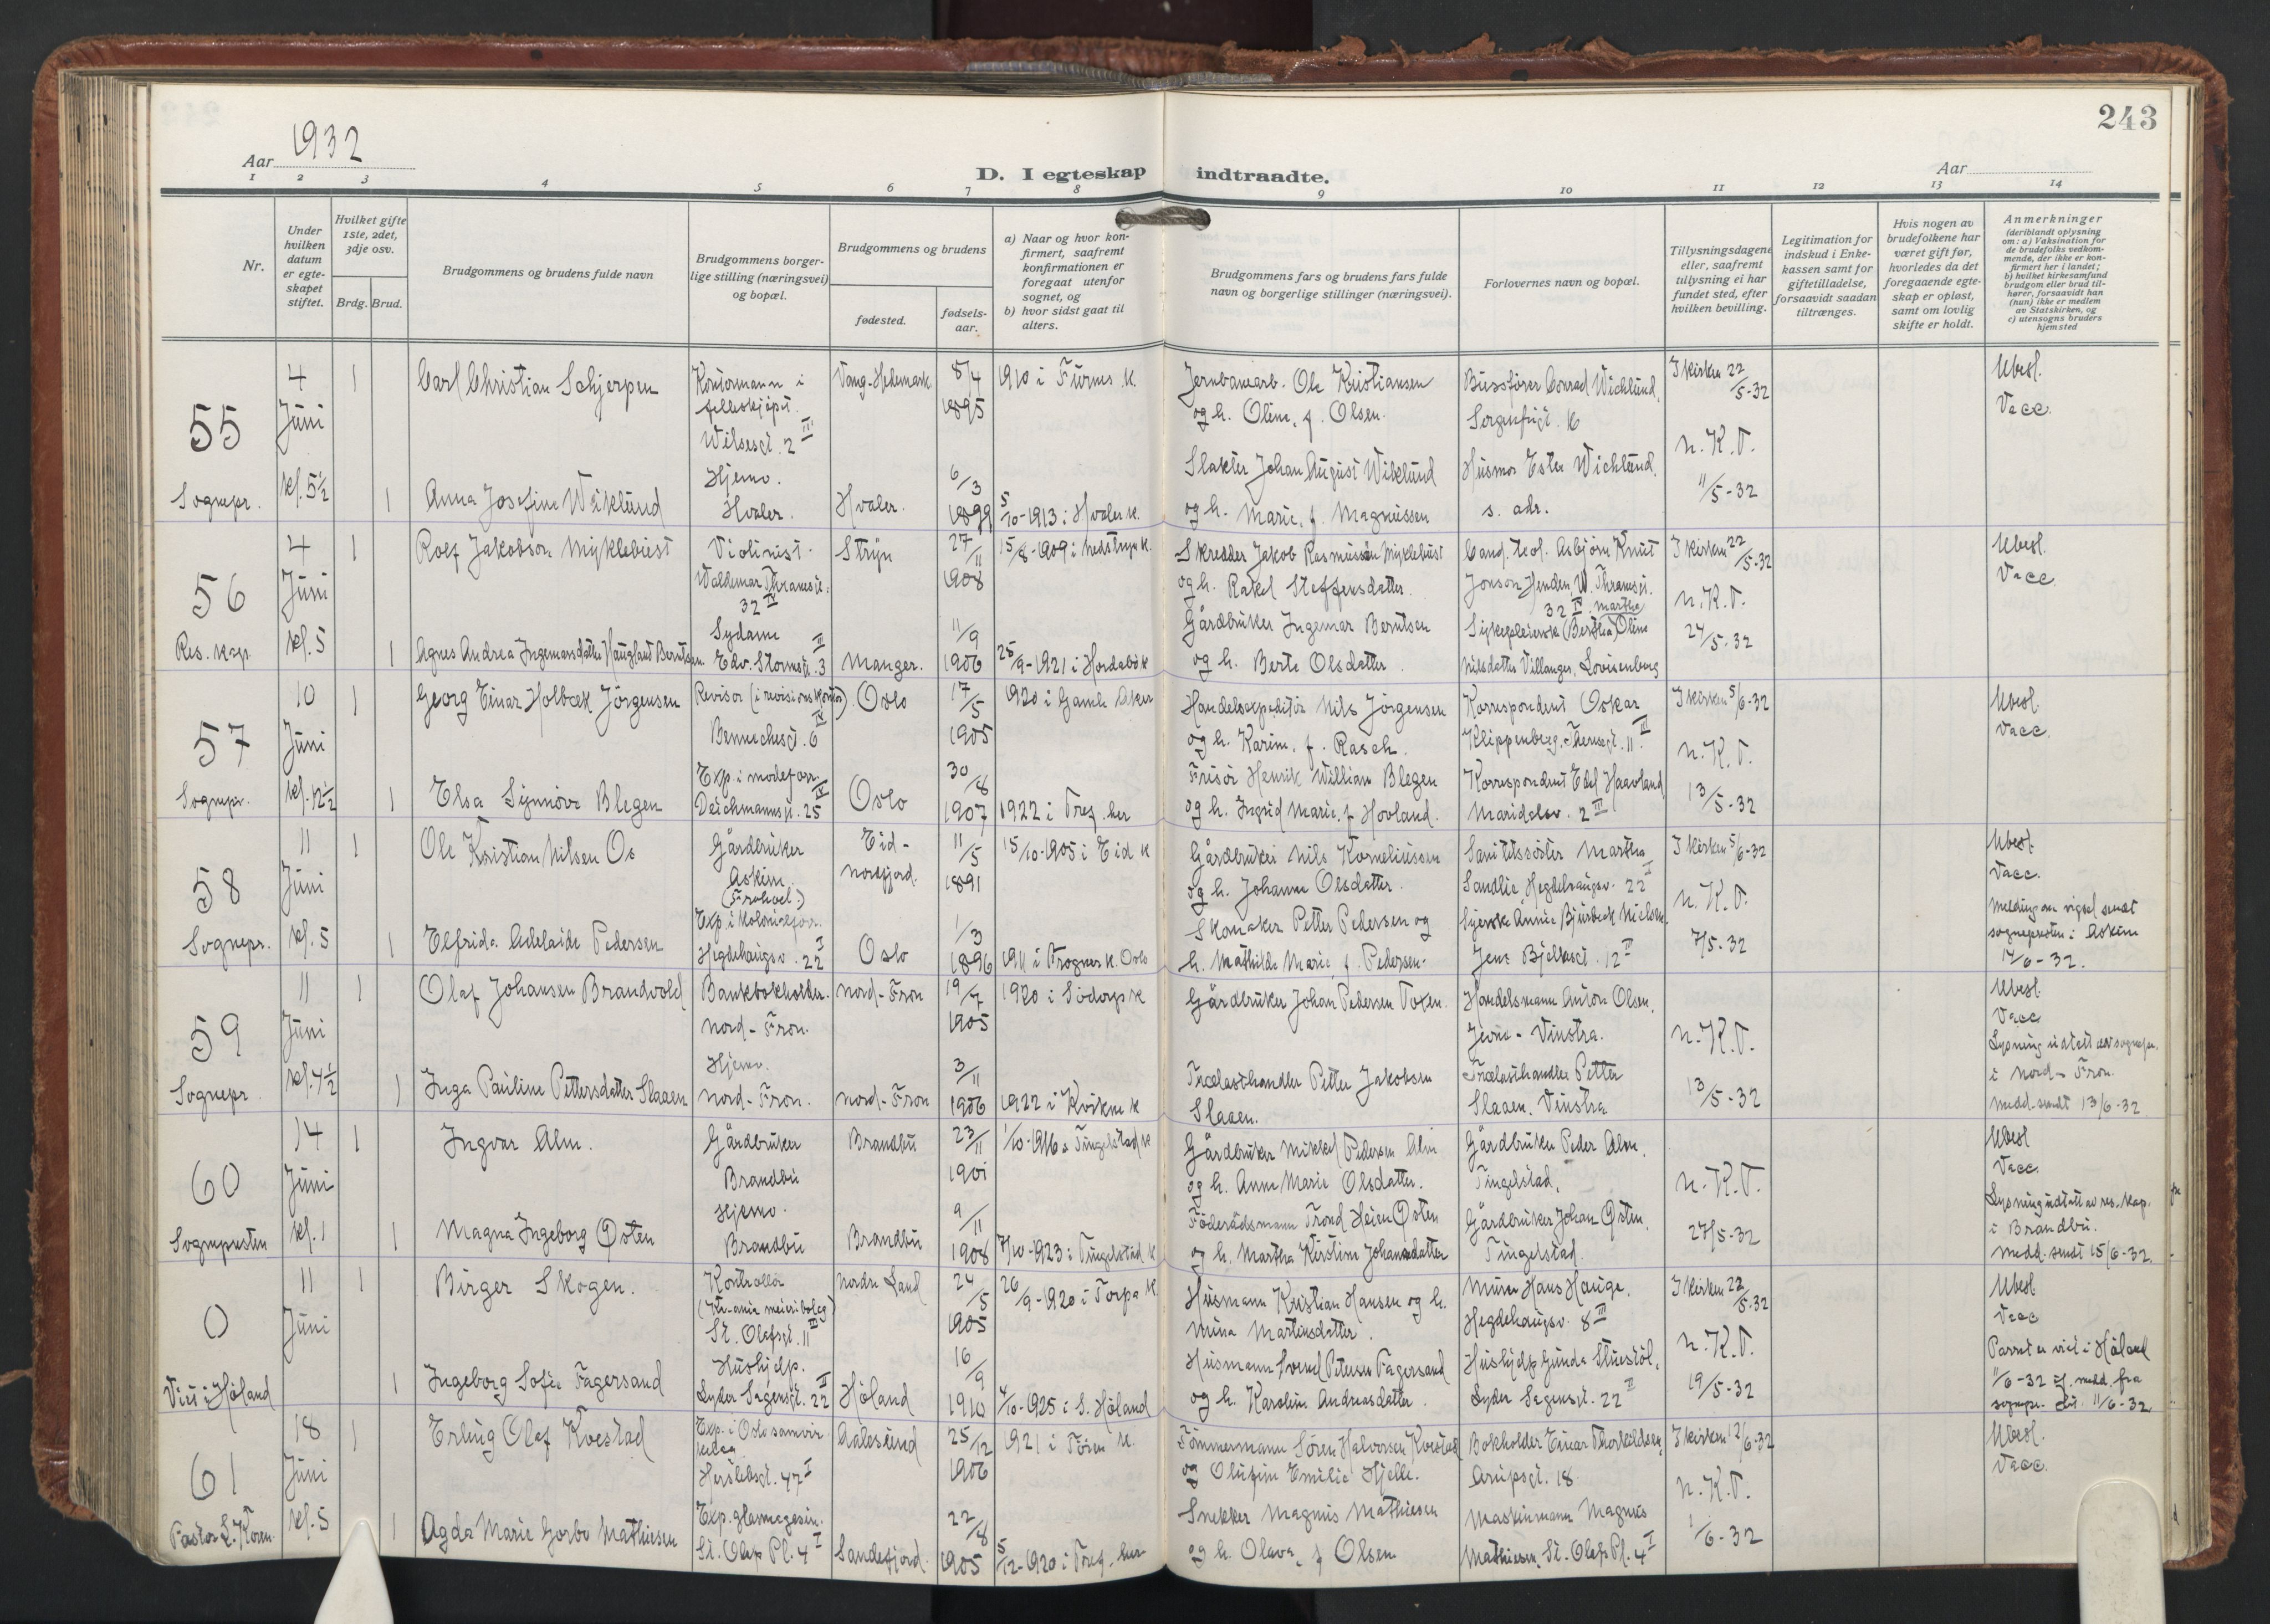 243
Aar 1932
D. I egteskap indtraadte.
Aar
1 2 3 4 5 6 7 8 9 10 11 12 13 14
Nr.
Under hvilken datum er egteskapet stiftet.
Hvilket gifte 1ste, 2det, 3dje osv.
Brdg. Brud.
Brudgommens og brudens fulde navn
Brudgommens borgerlige stilling (næringsvei) og bopæl.
Brudgommens og brudens
fødested.
fødselsaar.
a) Naar og hvor konfirmert, saafremt konfirmationen er foregaat utenfor sognet, og
b) hvor sidst gaat til alters.
Brudgommens fars og brudens fars fulde navn og borgerlige stillinger (næringsvei).
Forlovernes navn og bopæl.
Tillysningsdagene eller, saafremt tillysning ei har fundet sted, efter hvilken bevilling.
Legitimation for indskud i Enkekassen samt for giftetilladelse, forsaavidt saadan tiltrænges.
Hvis nogen av brudefolkene har været gift før, hvorledes da det foregaaende egteskap er opløst, samt om lovlig skifte er holdt.
Anmerkninger (deriblandt oplysning om: a) Vaksination for de brudefolks vedkommende, der ikke er konfirmert her i landet; b) hvilket kirkesamfund brudgom eller brud tilhører, forsaavidt han (hun) ikke er medlem av Statskirken, og c) utensogns bruders hjemsted
55 Sognepr.
4 Juni kl. 5½
1
Carl Christian Schjerpen
Kontormann i felleskjøpet. Wilsesgt. 2 III
Vang-Hedemark
8/4 1895
1910 i Furnes k.
Jernbanearb. Ole Kristiansen
og h. Oline, f. Olsen.
Bussfører Conrad Wichlund,
Sorgenfrigt. 16
I kirken 22/5-32
n. K. T.
11/5-32
Ubesl.
Vacc.
1
Anna Josefine Wiklund
Hjemv. Hvaler.
Hvaler.
6/3 1899
5/10-1913 i Hvaler k.
Slakter Johan August Wiklund
og h. Marie, f. Magnussen
Husmor Ester Wichlund,
s. adr.
56 Res. kap.
4 Juni kl. 5
1
Rolf Jakobson Myklebust
Violinist. Waldemar Thranesgt. 32 IV
Stryn
27/11 1908
15/8-1909 i Nedstryn k.
Skredder Jakob Rasmussen Myklebust
og h. Rakel Steffensdatter.
Cand. teol. Asbjørn Knut
Jonson Henden, W. Thranesgt.
32 IV
I kirken 22/5-32
n. K. T.
24/5-32
Ubesl.
Vacc.
1
Agnes Andrea Ingemarsdatter Haugland Berntsen
Sydame Edv. Stormsgt. 3 III
Manger.
11/9 1906
25/9-1921 i Hordabø k
Gårdbruker Ingemar Berntsen
og h. Berte Olsdatter.
Sykepleierske (Bertha) Martha Oline
Nilsdatter Villanger, Lovisenberg
57 Sognepr.
10 Juni kl. 12½
1
Georg Einar Holbæk Jörgensen
Revisor (i revisionskontor) Bennechesgt. 6 IV
Oslo
17/5 1905
1920 i Gamle Aker
Handelsexpeditör Nils Jörgensen
og h. Karin, f. Rasch.
Korrespondent Oskar
Klippenberg, Theresegt. 11 III
I kirken 5/6-32
n. K. T.
13/5-32
Ubesl.
Vacc.
1
Elsa Synnöve Blegen
Exp. i modeforr. Deichmannsgt. 25 IV
Oslo
30/8 1907
1922 i Tref. her
Frisör Henrik William Blegen
og h. Ingrid Marie, f. Hovland.
Korrespondent Edel Haavland,
Maridalsv. 2 III
58 Sognepr.
11 Juni kl. 5
1
Ole Kristian Nilsen Os
Gårdbruker Askim. (Frohoel)
Eid-Nordfjord.
11/5 1891
15/10-1905 i Eid k
Gårdbruker Nils Korneliussen
og h. Johanne Olsdatter.
Sanitetssöster Martha
Sandlie, Hegdehaugsv. 22 I
I kirken 5/6-32
n. K. T.
7/5-32
Ubesl.
Vacc.
Melding om vigsel sendt
sognepresten i Askim
14/6-32.
1
Elfrida Adelaide Pedersen
Exp. i kolonialforr. Hegdehaugsv. 22 I
Oslo
1/3 1896
1911 i Frogner k. Oslo
Skomaker Petter Pedersen og
h. Mathilde Marie, f. Pedersen.
Syerske Annie Bjurbeck Nielsen
Jens Bjelkesgt. 12 II
59 Sognepr.
11 Juni kl. 4½
1
Olaf Johansen Brandvold
Bankbokholder. Nord-Fron.
Nord-Fron
19/7 1905
1920 i Södorp k
Gårdbruker Johan Pedersen Toxen.
Handelsmann Anton Olsen,
Jevne-Vinstra.
n. K. T.
13/5-32
Ubesl.
Vacc.
Lysning utstedt av sognepr.
i Nord-Fron.
Medd. sendt 13/6-32
1
Inga Pauline Pettersdatter Slaaen
Hjemv. Nord-Fron.
Nord-Fron
3/11 1906
1922 i Kvikne k
Trælasthandler Petter Jakobsen
Slaaen.
Trælasthandler Petter
Slaaen, Vinstra
60 Sognepresten
14 Juni kl. 1
1
Ingvar Alm.
Gårdbruker Brandbu
Brandbu
23/11 1901
1/10-1916 i Tingelstad k
Gårdbruker Mikkel Pedersen Alm
og h. Anne Marie Olsdatter.
Gårdbruker Peder Alm,
Tingelstad,
n. K. T.
27/5-32
Ubesl
Vacc.
Lysning utstedt av res. kap.
i Brandbu.
Medd. sendt 15/6-32.
1
Magna Ingeborg Østen
Hjemv. Brandbu
Brandbu
9/11 1908
7/10-1923 i Tingelstad k
Föderådsmann Trond Heien Østen
og h. Martha Kristine Johansdatter
Gårdbruker Johan Østen,
Tingelstad.
0 Viet i Höland
11 Juni
1
Birger Skogen.
Kontrollör (Kr-ania meieribolag) St. Olafsgt. 11 III
Nordre Land
24/5 1905
26/9-1920 i Torpa k
Husmann Kristian Hansen og h.
Mina Martinsdatter.
Murer Hans Hauge,
Hegdehaugsv. 8 III
I kirken 22/5-32
n. K. T.
19/5-32
Ubesl
Vacc
Parret er viet i Höland
11/6-32 if. medd. fra
sognepr. dat. 11/6-32
1
Ingeborg Sofie Fagersand
Hushjelp. Lyder Sagensgt. 22 II
Höland
16/9 1910
4/10-1925 i S. Höland
Husmann Svend Petersen Fagersand
og h. Karoline Andreasdatter.
Hushjelp Gunda Stuestöl,
Lyder Sagensgt. 22 II
61 Pastor L. Koren.
18 Juni kl. 5
1
Erling Olaf Kvestad
Exp. i Oslo samvirkelag Herslebsgt. 47 I
Aalesund
25/12 1906
1921 i Töien k.
Tömmermann Sören Halvorsen Kvestad
og Olufine Emilie Hjelle.
Bokholder Einar Thorkildsen,
Arupsgt. 18
I kirken 12/6-32
n. K. T.
1/6-32
Ubesl.
Vacc.
1
Agda Marie Gorbo Mathiesen
Exp. glasmagasin. St. Olafs Pl. 4 I
Sandefjord.
22/8 1905
5/12-1920 i Tref. her
Snekker Magnus Mathiesen
og h. Olava, f. Olsen
Maskinmann Magnus
Mathiesen, St. Olafs Pl. 4 I